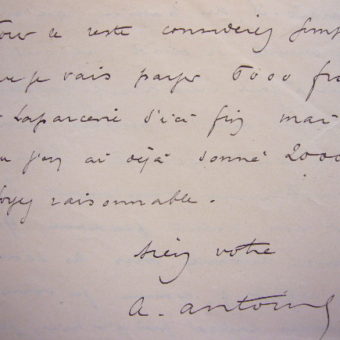 ce reste considérez
je vais payer 6000 fr
Laparcerie d'ici fin mai
j'en ai déjà donné 2000
soyez raisonnable.
bien votre
a. antoine